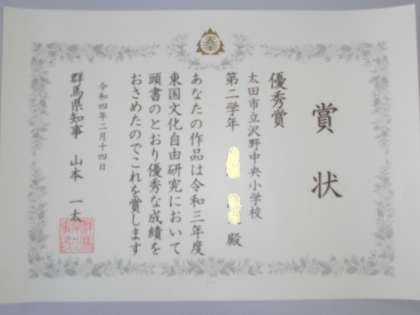 賞状
優秀賞
太田市立沢野中央小学校
第二学年 殿
あなたの作品は令和三年度
東国文化自由研究において
頭書のとおり優秀な成績を
おさめたのでこれを賞します
令和四年二月十四日
群馬県知事 山本 一太